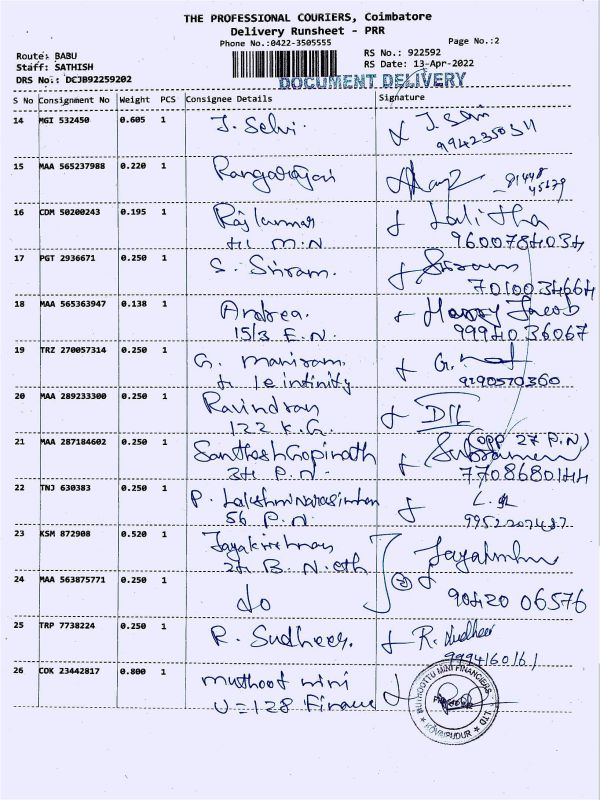 THE PROFESSIONAL COURIERS, Coimbatore
Delivery Runsheet - PRR
Phone No.:0422-3505555
Page No.:2
Route: BABU
Staff: SATHISH
DRS No.: DCJB92259202
RS No.: 922592
RS Date: 13-Apr-2022
DOCUMENT DELIVERY
S No Consignment No Weight PCS Consignee Details Signature
14 MGI 532450 0.605 1 J. Selvi.
9942350311
15 MAA 565237988 0.220 1 Rangarajan
16 CDM 50200243 0.195 1 Rajkumar Lalitha
M.N 9600784034
17 PGT 2936671 0.250 1 S. Sriram. Sriram
7010034664
18 MAA 565363947 0.138 1 Andrea. Harry Jacob
15/3 E.N. 9994036067
19 TRZ 270057314 0.250 1 G. Maniram.
infinity 9190570360
20 MAA 289233300 0.250 1 Ravindran
122 K.G.
(opp 27 P.N)
21 MAA 287184602 0.250 1 Santhosh Gopinath
P.N. 7708680144
22 TNJ 630383 0.250 1 P. Lakshminarasimhan
56 P.N. 9952207487
23 KSM 872908 0.520 1 Jayakrishnan
B.N.
24 MAA 563875771 0.250 1 do 90420 06576
25 TRP 7738224 0.250 1 R. Sudheer. R. Sudheer
9994160161
26 CDK 23442817 0.800 1 muthoot mini
U=128 Finance
MUTHOOTTU MINI FINANCIERS LTD
KOVAIPUDUR